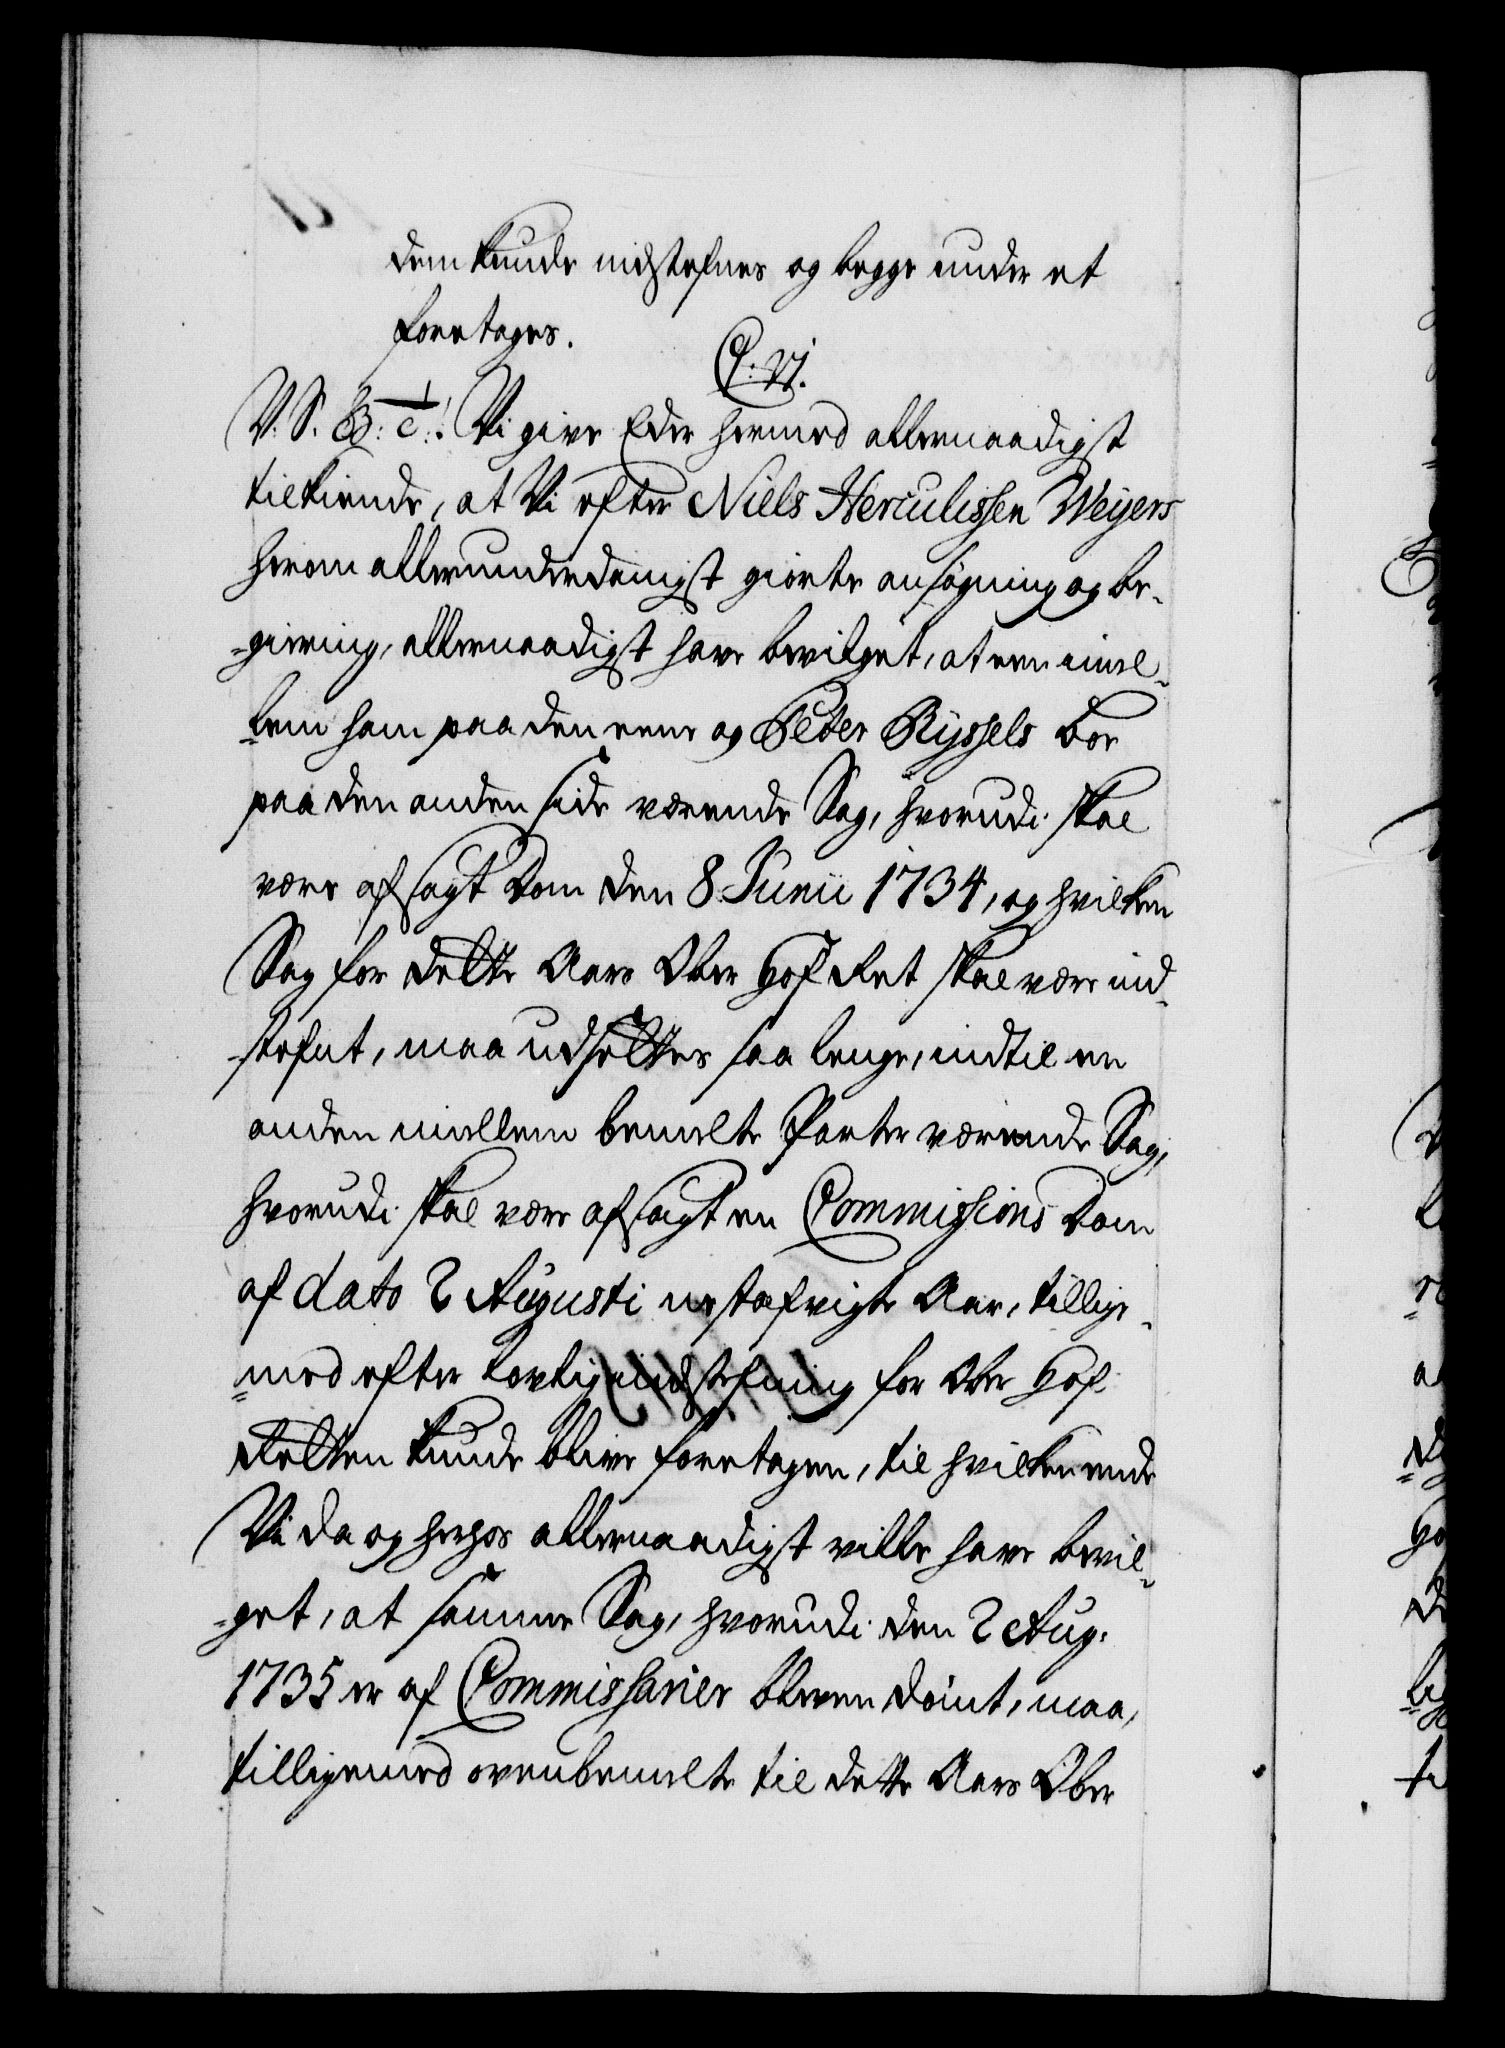 dem kunde indstefnes og begge under et
foretages.
C. VI.
V. S. G: T: Vi give Eder hermed allernaadigst
tilkiende, at Vi efter Niels Herculissen Weyers
herom allerunderdanigst giorte ansøgning og be-
-giering, allernaadigst have bevilget, at een imel-
-lem ham paa den eene og Peder Ryssels boe
paa den anden side værende Sag, hvorudi skal
være afsagt Dom den 8 Junii 1734, og hvilken
Sag for dette Aars Ober Hof Ret skal være ind-
-stefnt, maa udsættes saa lenge, indtil en
anden imellem bemelte Parter værende Sag,
hvorudi skal være afsagt en Commissions Dom
af dato 2 Augusti nestafvigte Aar, tillige-
-med efter lovlig indstefning for Ober Hof
Retten kunde blive foretagen, til hvilken ende
Vi da og herhos allernaadigst ville have bevil-
-get, at samme Sag, hvorudi den 2 Aug:
1735 er af Commissarier bleven dømt, maa,
tilligemed ovenbemelte til dette Aars Ober